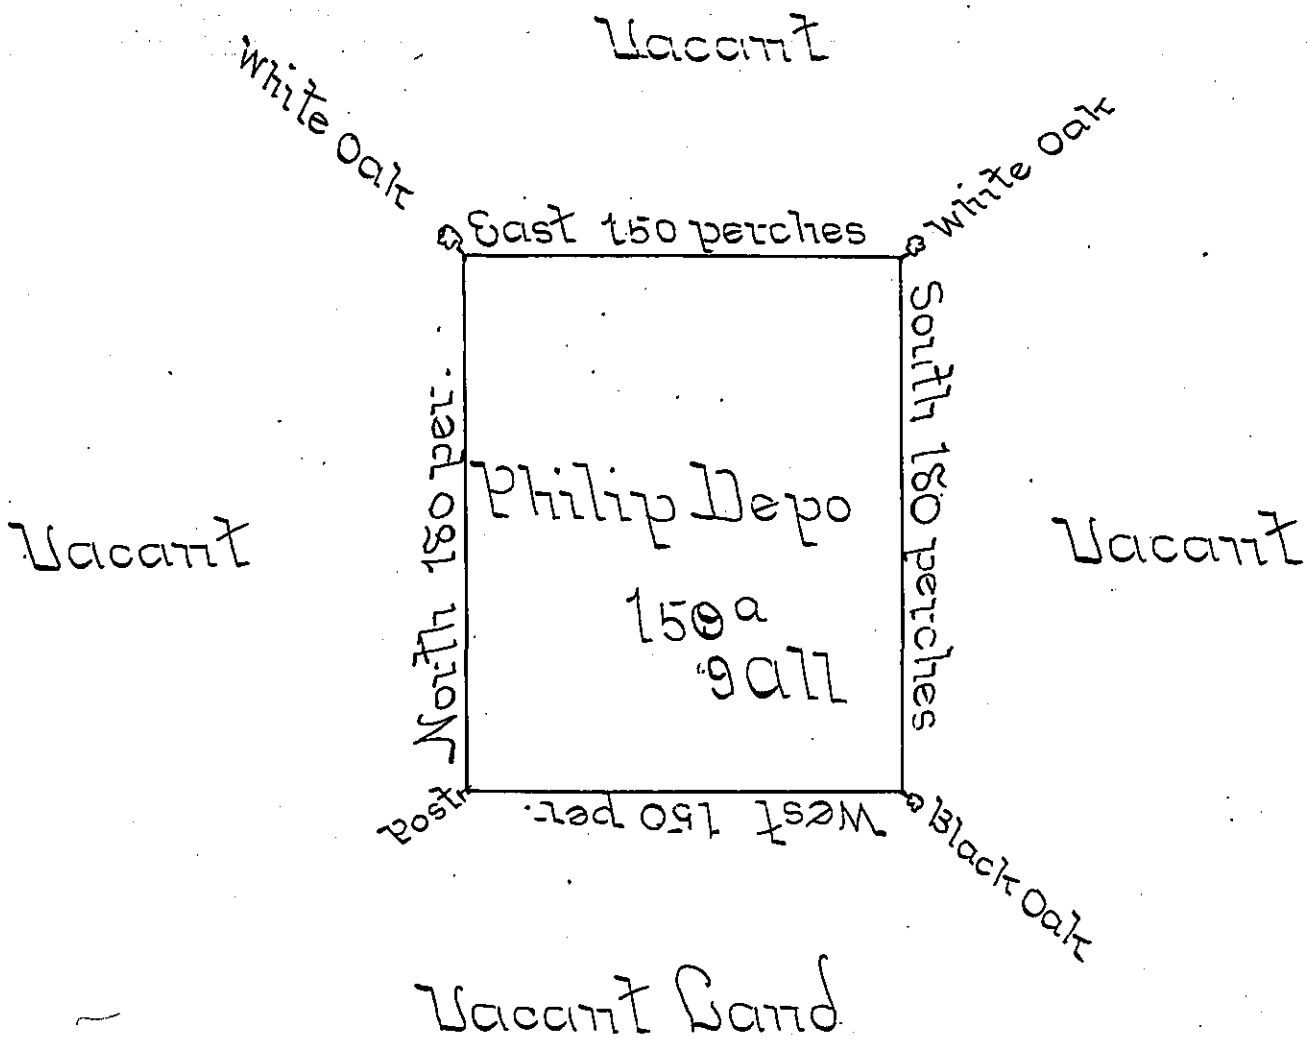 Vacant
White Oak
White Oak
East 150 perches
South 180 perches
North 180 per.
Philip Depo
Vacant
Vacant
150 a
9 all
West 150 per.
Post
Black Oak
Vacant Land